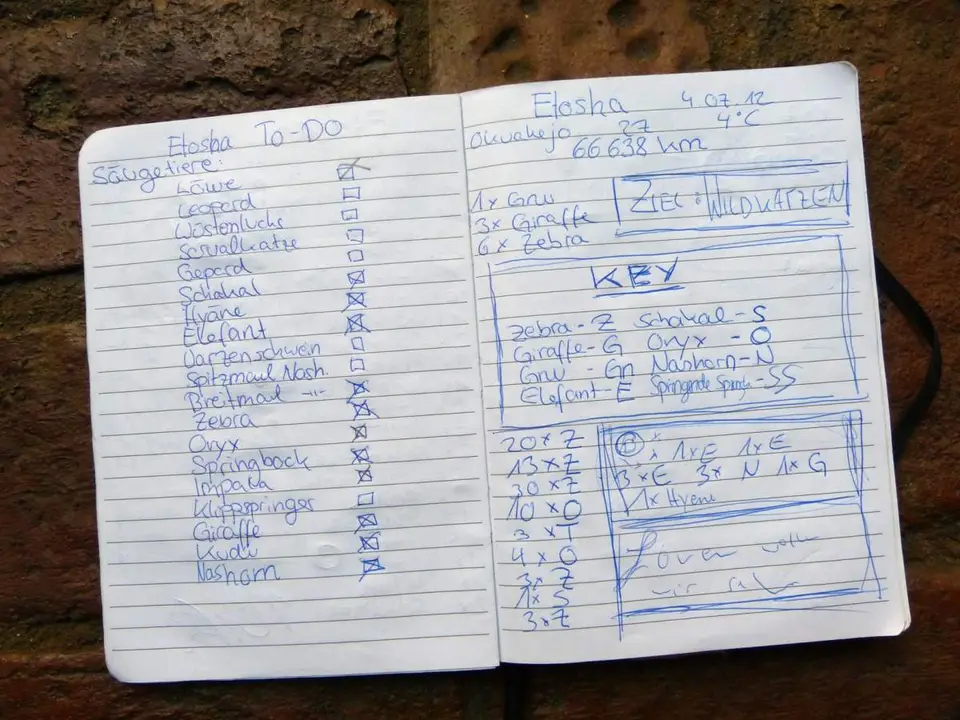 Etosha TO-DO
Säugetiere:
Löwe
Leopard
Wüstenluchs
Servalkatze
Gepard
Schakal
Hyäne
Elefant
Warzenschwein
Spitzmaul Nash.
Breitmaul -"-
Zebra
Oryx
Springbock
Impala
Klippspringer
Giraffe
Kudu
Nashorn
Etosha 4.07.12
Okuakejo 27 4°C
66638 km
1x Gnu
3x Giraffe
6x Zebra
ZIEL: WILDKATZEN
KEY
Zebra - Z Schakal - S
Giraffe - G Oryx - O
Gnu - Gn Nashorn - N
Elefant - E Springende - SS
20x Z
13x Z
30x Z
10x O
3x T
4x O
3x Z
1x S
3x Z
1xE 1xE
3xE 3x N 1x G
1x Hyene
Löwen
wir